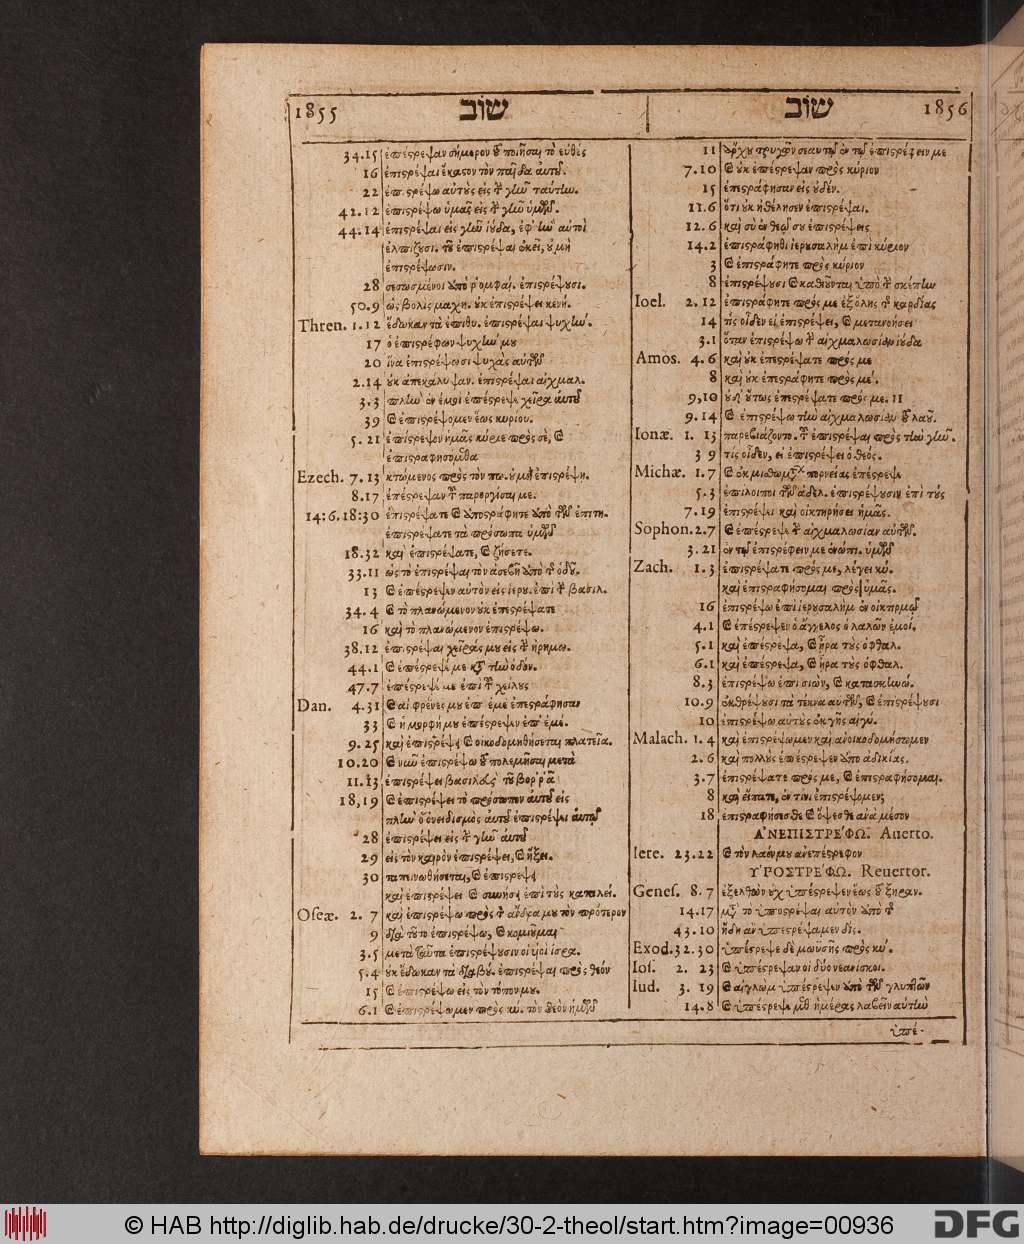 1855 שוב
34.15 ἐπέστρεψαν σήμερον τοῦ ποιῆσαι τὸ εὐθὲς
16 ἐπιστρέψαι ἕκαστον τὸν παῖδα αὐτοῦ.
22 ἐπιστρέψω αὐτοὺς εἰς τὴν γῆν ταύτην.
42.12 ἐπιστρέψω ὑμᾶς εἰς τὴν γῆν ὑμῶν.
44.14 ἐπιστρέψαι εἰς γῆν ἰούδα, ἐφ᾽ ἣν αὐτοὶ
ἐλπίζουσι. τοῦ ἐπιστρέψαι ἐκεῖ, οὐ μὴ
ἐπιστρέψωσιν.
28 σεσωσμένοι ὑπὸ ῥομφαί. ἐπιστρέψουσι.
50.9 ὡς βολὶς μαχη. οὐκ ἐπιστρέψει κενή.
Thren. 1.12 ἔδωκαν τὰ ἐπιθυ. ἐπιστρέψαι ψυχήν.
17 ὁ ἐπιστρέφων ψυχήν μου
20 ἵνα ἐπιστρέψωσι ψυχὰς αὐτῶν
2.14 οὐκ ἀπεκάλυψαν. ἐπιστρέψαι αἰχμαλ.
3.3 πλὴν ἐν ἐμοὶ ἐπέστρεψε χεῖρα αὐτοῦ
39 καὶ ἐπιστρέψομεν ἕως κυρίου.
5.21 ἐπίστρεψον ἡμᾶς κύριε πρὸς σὲ, καὶ
ἐπιστραφησόμεθα
Ezech. 7.13 κτώμενος πρὸς τὸν πω. οὐ μὴ ἐπιστρέψῃ.
8.17 ἐπέστρεψαν τοῦ παροργίσαι με.
14:6.18:30 ἐπιστρέψατε καὶ ἀποστράφητε ἀπὸ τῶν ἐπιτη.
ἐπιστρέψατε τὰ πρόσωπα ὑμῶν
18.32 καὶ ἐπιστρέψατε, καὶ ζήσετε.
33.11 ὡς τὸ ἐπιστρέψαι τὸν ἀσεβῆ ἀπὸ τῆς ὁδοῦ.
13 καὶ ἐπέστρεψεν αὐτὸν εἰς ἱερου. ἐπὶ τὴν βασιλ.
34.4 καὶ τὸ πλανώμενον οὐκ ἐπεστρέψατε
16 καὶ τὸ πλανώμενον ἐπιστρέψω.
38.12 ἐπιστρέψαι χεῖράς μου εἰς τὴν ἠρημω.
44.1 καὶ ἐπέστρεψέ με κατὰ τὴν ὁδὸν.
47.7 ἐπέστρεψέ με ἐπὶ τὸ χεῖλος
Dan. 4.31 καὶ αἱ φρένες μου ἐπ᾽ ἐμὲ ἐπεστράφησαν
33 καὶ ἡ μορφή μου ἐπέστρεψεν ἐπ᾽ ἐμέ.
9.25 καὶ ἐπιστρέψει καὶ οἰκοδομηθήσεται πλατεῖα.
10.20 καὶ νῦν ἐπιστρέψω τοῦ πολεμῆσαι μετὰ
11.13 ἐπιστρέψει βασιλεὺς τοῦ βορρᾶ
18,19 καὶ ἐπιστρέψει τὸ πρόσωπον αὐτοῦ εἰς
πλὴν ὁ ὀνειδισμὸς αὐτοῦ ἐπιστρέψει αὐτῷ
28 ἐπιστρέψει εἰς τὴν γῆν αὐτοῦ
29 εἰς τὸν καιρὸν ἐπιστρέψει, καὶ ἥξει.
30 ταπεινωθήσεται, καὶ ἐπιστρέψει
καὶ ἐπιστρέψει καὶ συνήσει ἐπὶ τοὺς καταλεί.
Oseæ. 2.7 καὶ ἐπιστρέψω πρὸς τὸν ἄνδρα μου τὸν πρότερον
9 διὰ τοῦτο ἐπιστρέψω, καὶ κομιοῦμαι
3.5 μετὰ ταῦτα ἐπιστρέψουσιν οἱ υἱοὶ ἰσρα.
5.4 οὐκ ἔδωκαν τὰ διαβού. ἐπιστρέψαι πρὸς θεόν
15 καὶ ἐπιστρέψω εἰς τὸν τόπον μου.
6.1 καὶ ἐπιστρέψωμεν πρὸς κύ. τὸν θεὸν ἡμῶν
שוב 1856
11 ἄρχου τρυγᾶν σεαυτῷ ἐν τῷ ἐπιστρέφειν με
7.10 καὶ οὐκ ἐπέστρεψαν πρὸς κύριον
15 ἐπεστράφησαν εἰς οὐδέν.
11.6 ὅτι οὐκ ἠθέλησεν ἐπιστρέψαι.
12.6 καὶ σὺ ἐν θεῷ σου ἐπιστρέψεις
14.2 ἐπιστράφηθι ἱερουσαλὴμ ἐπὶ κύριον
3 καὶ ἐπιστράφητε πρὸς κύριον
8 ἐπιστρέψουσι καὶ καθιοῦνται ὑπὸ τὴν σκέπην
Ioel. 2.12 ἐπιστράφητε πρός με ἐξ ὅλης τῆς καρδίας
14 τίς οἶδεν εἰ ἐπιστρέψει, καὶ μετανοήσει
3.1 ὅταν ἐπιστρέψω τὴν αἰχμαλωσίαν ἰούδα
Amos. 4.6 καὶ οὐκ ἐπεστρέψατε πρός με
8 καὶ οὐκ ἐπεστράφητε πρός μέ.
9,10 οὐδ᾽ οὕτως ἐπεστρέψατε πρός με. 11
9.14 καὶ ἐπιστρέψω τὴν αἰχμαλωσίαν τοῦ λαοῦ.
Ionæ. 1. 13 παρεβιάζοντο. τοῦ ἐπιστρέψαι πρὸς τὴν γῆν.
3 9 τίς οἶδεν, εἰ ἐπιστρέψει ὁ θεός.
Michæ. 1.7 καὶ ἐκ μισθωμάτων πορνείας ἐπέστρεψε
5.3 ἐπίλοιποι τῶν ἀδελ. ἐπιστρέψουσιν ἐπὶ τοὺς
7.19 ἐπιστρέψει καὶ οἰκτηρήσει ἡμᾶς.
Sophon. 2.7 καὶ ἐπέστρεψε τὴν αἰχμαλωσίαν αὐτῶν.
3.21 ἐν τῷ ἐπιστρέφειν με ἐνώπι. ὑμῶν
Zach. 1.3 ἐπιστρέψατε πρός με, λέγει κύ.
καὶ ἐπιστραφήσομαι πρὸς ὑμᾶς.
16 ἐπιστρέψω ἐπὶ ἱερουσαλὴμ ἐν οἰκτιρμῷ
4.1 καὶ ἐπέστρεψεν ὁ ἄγγελος ὁ λαλῶν ἐμοί.
5.1 καὶ ἐπέστρεψα, καὶ ἦρα τοὺς ὀφθαλ.
6.1 καὶ ἐπέστρεψα, καὶ ἦρα τοὺς ὀφθαλ.
8.3 ἐπιστρέψω ἐπὶ σιὼν, καὶ κατασκηνώ.
10.9 ἐκθρέψουσι τὰ τέκνα αὐτῶν, καὶ ἐπιστρέψουσι
10 ἐπιστρέψω αὐτοὺς ἐκ γῆς αἰγύ.
Malach. 1.4 καὶ ἐπιστρέψωμεν καὶ ἀνοικοδομήσωμεν
2.6 καὶ πολλοὺς ἐπέστρεψεν ἀπὸ ἀδικίας.
3.7 ἐπιστρέψατε πρός με, καὶ ἐπιστραφήσομαι.
8 καὶ εἴπατε, ἐν τίνι ἐπιστρέψομεν;
18 ἐπιστραφήσεσθε καὶ ὄψεσθε ἀνὰ μέσον
ἈΝΕΠΙΣΤΡΕΦΩ. Auerto.
Iere. 23.22 καὶ τὸν λαόν μου ἀνεπέστρεφον
ὙΠΟΣΤΡΕΦΩ. Reuertor.
Genes. 8.7 ἐξελθὼν οὐχ ὑπέστρεψεν ἕως τοῦ ξηραν.
14.17 μετὰ τὸ ὑποστρέψαι αὐτὸν ἀπὸ τῆς
43.10 ἤδη ἂν ὑπεστρέψαμεν δίς.
Exod. 32.30 ὑπέστρεψε δὲ μωϋσῆς πρὸς κύ.
Ios. 2. 23 καὶ ὑπέστρεψαν οἱ δύο νεανίσκοι.
Iud. 3. 19 καὶ αἰγλὼμ ὑπέστρεψεν ἀπὸ τῶν γλυπτῶν
14.8 καὶ ὑπέστρεψε μεθ᾽ ἡμέρας λαβεῖν αὐτὴν
ὑπέ-
© HAB http://diglib.hab.de/drucke/30-2-theol/start.htm?image=00936
DFG